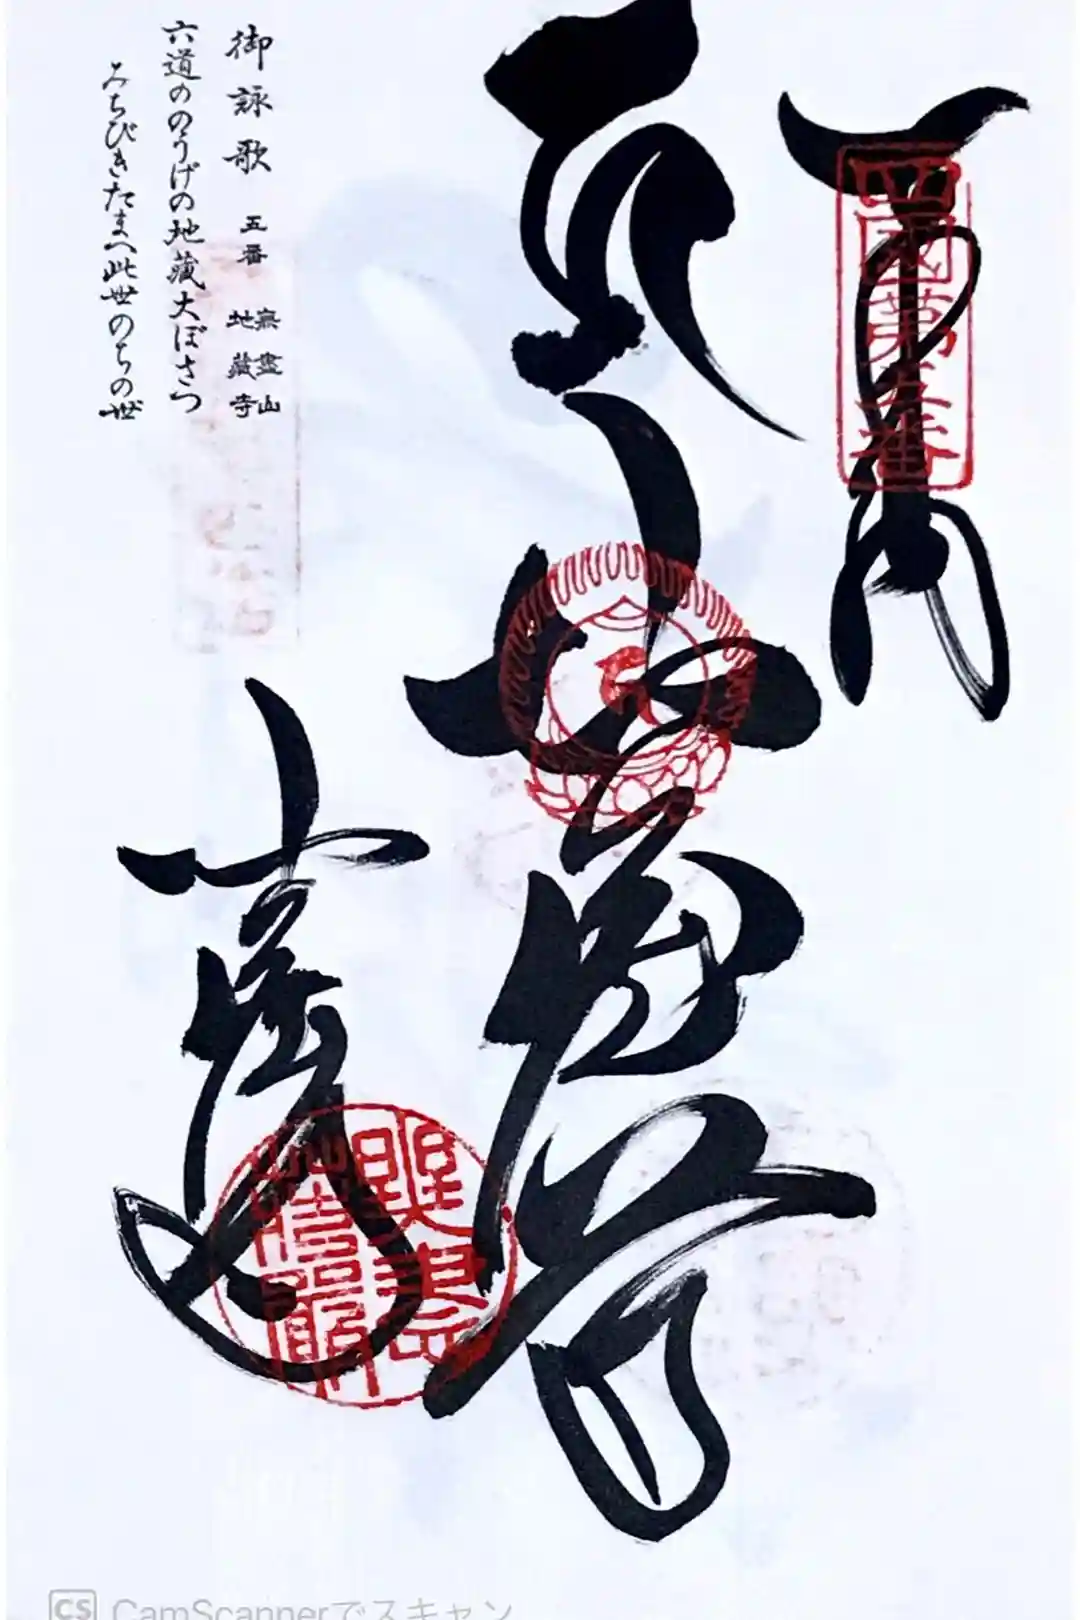 奉納
四國第五番
地蔵尊
地蔵寺
御詠歌 五番 無盡山 地蔵寺
六道ののうげの地蔵大ぼさつ
みちびきたまへ此世のちの世
CS CamScannerでスキャン